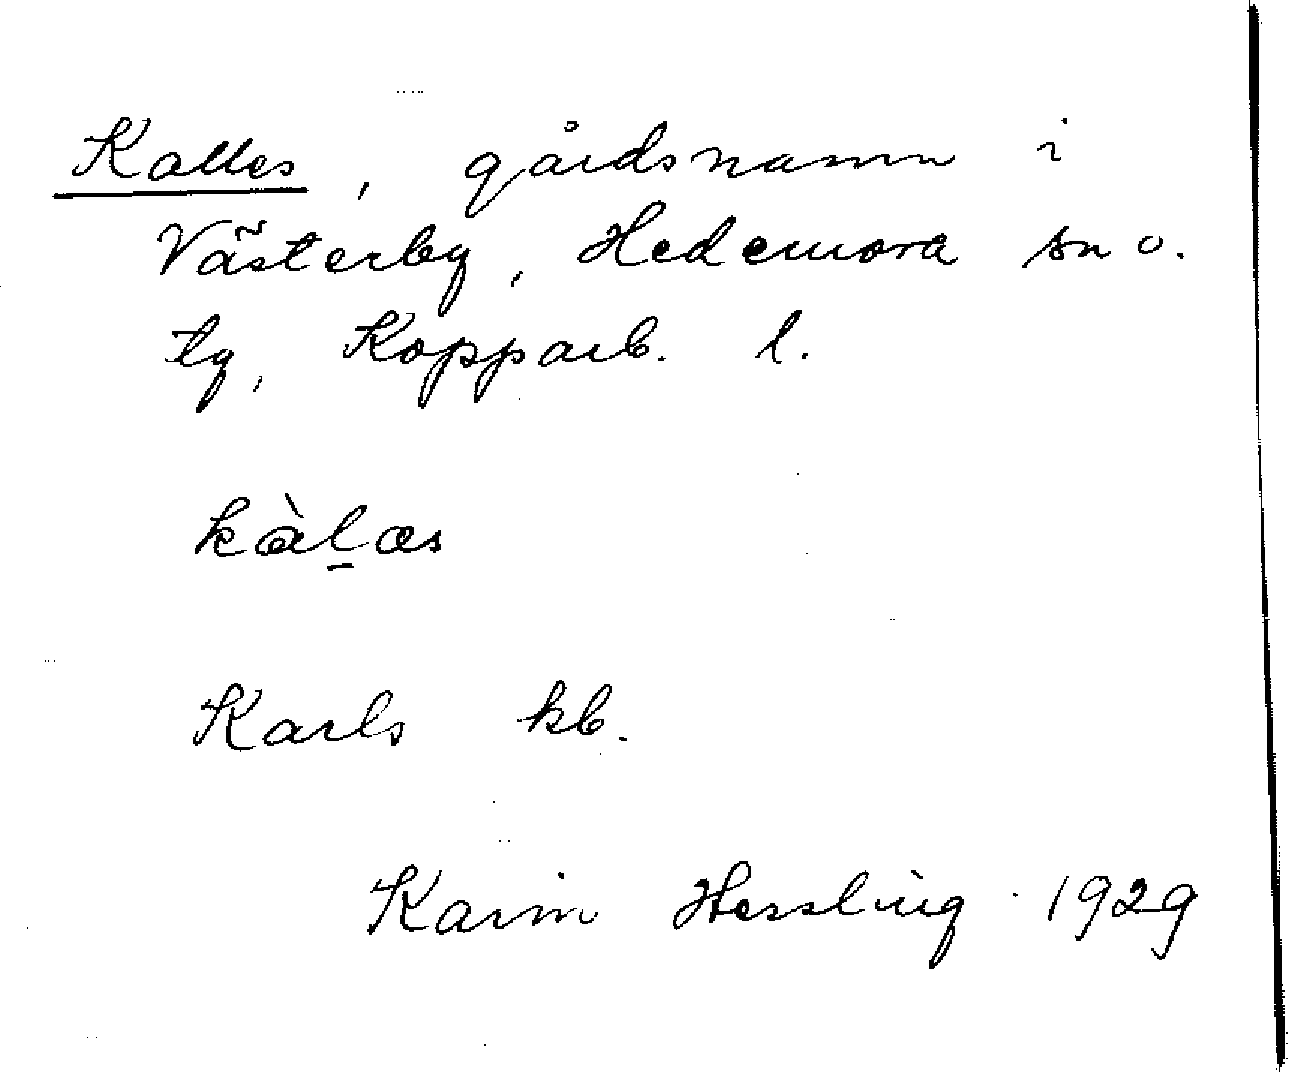 Kalles, gårdsnamn i
Västerby, Hedemora sn o.
tg, Kopparb. l.
kàlas
Karls kb.
Karin Hessling 1929